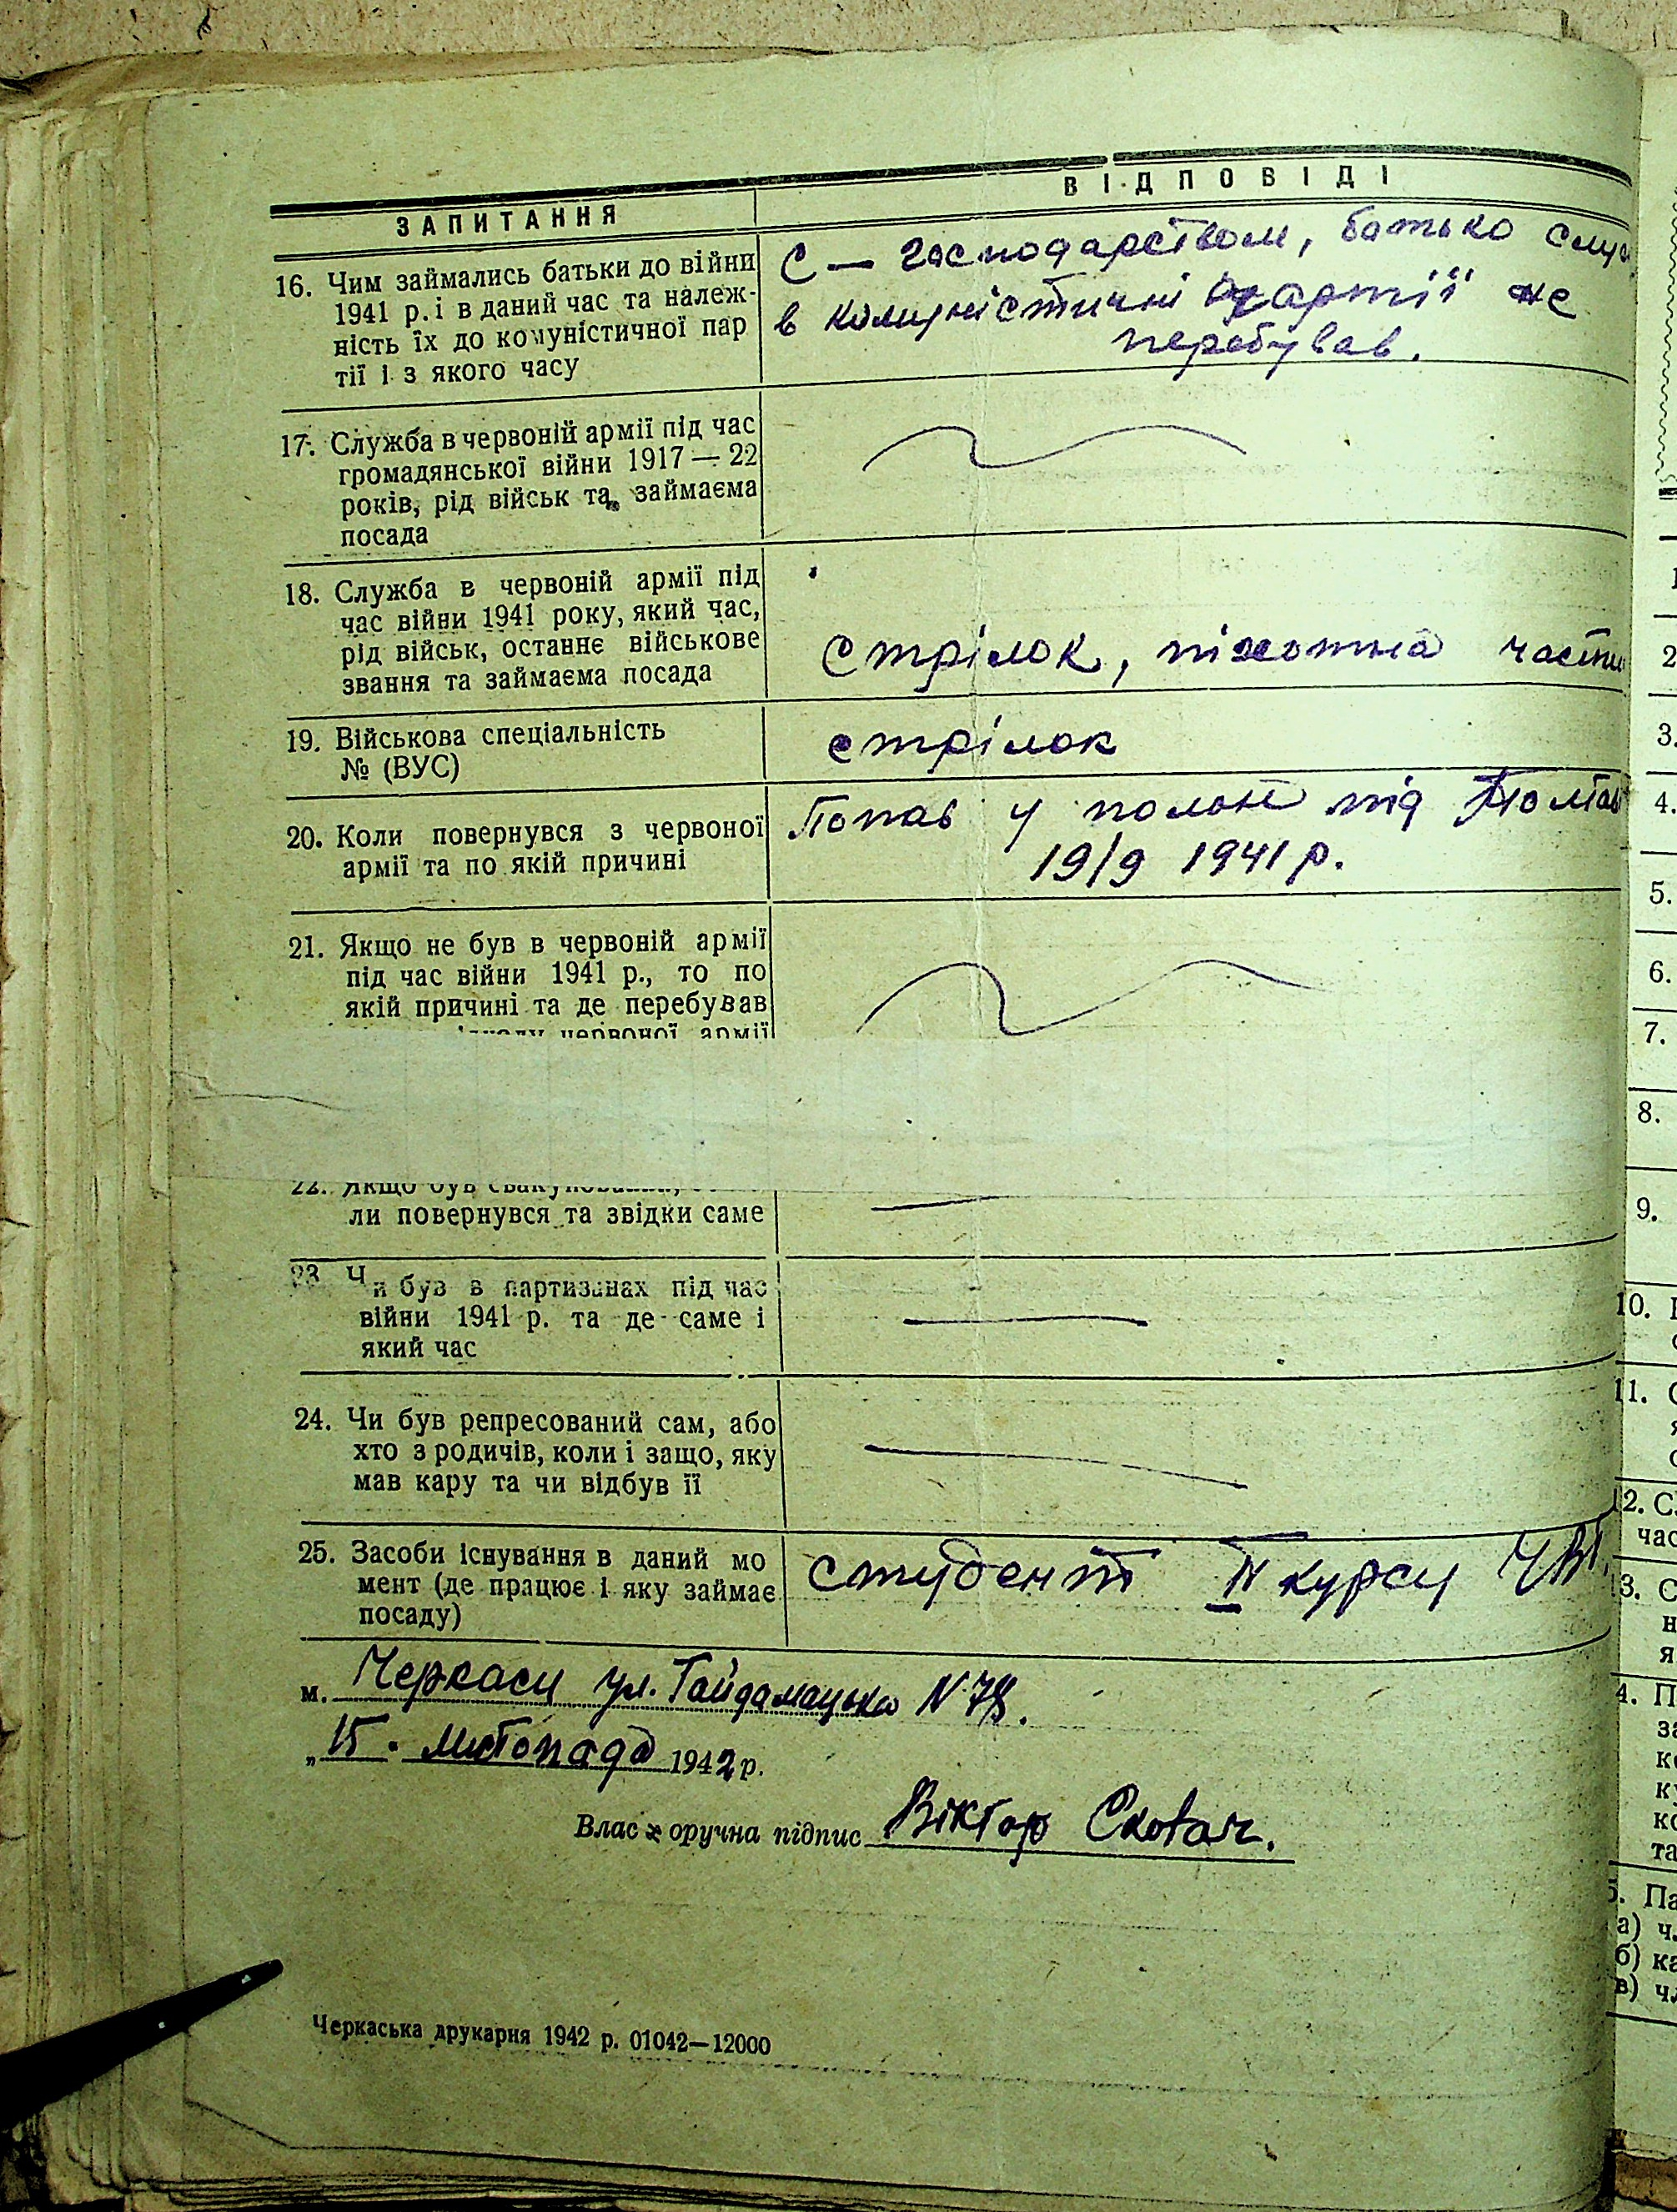 ЗАПИТАННЯ
ВІДПОВІДІ
16. Чим займались батьки до війни
1941 р. і в даний час та належ-
ність їх до комуністичної пар
тії і з якого часу
С — господарством, батько служ
в комуністичні партії не
перебував.
17. Служба в червоній армії під час
громадянської війни 1917 — 22
років, рід військ та займаєма
посада
18. Служба в червоній армії під
час війни 1941 року, який час,
рід військ, останнє військове
звання та займаєма посада
Стрілок, піхотна части
19. Військова спеціальність
№ (ВУС)
стрілок
20. Коли повернувся з червоної
армії та по якій причині
Попав у полон під Полтав
19/9 1941 р.
21. Якщо не був в червоній армії
під час війни 1941 р., то по
якій причині та де перебував
червоної армії
22. Якщо був
ли повернувся та звідки саме
23. Чи був в партизанах під час
війни 1941 р. та де саме і
який час
24. Чи був репресований сам, або
хто з родичів, коли і защо, яку
мав кару та чи відбув її
25. Засоби існування в даний мо
мент (де працює і яку займає
посаду)
студент IV курсу
м. Черкаси ул. Гайдамацька N 78.
„15. листопада 1942 р.
Власноручна підпис Віктор
Черкаська друкарня 1942 р. 01042—12000
1
2
3.
4.
5.
6.
7.
8.
9.
10.
11.
12. С
час
3. С
н
я
4. П
за
к
ку
ко
та
5. Па
а) ч
б) ка
в) ч